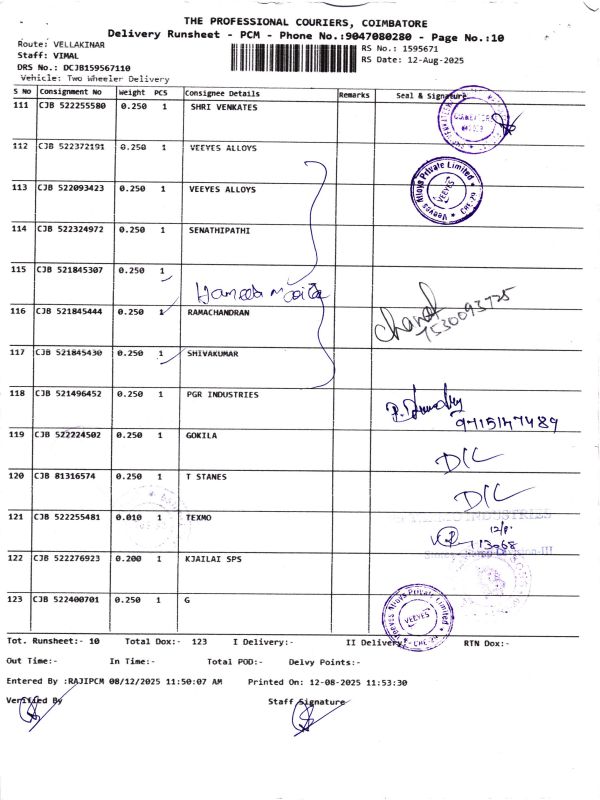 THE PROFESSIONAL COURIERS, COIMBATORE
Delivery Runsheet - PCM - Phone No.:9047080280 - Page No.:10
Route: VELLAKINAR
RS No.: 1595671
Staff: VIMAL
RS Date: 12-Aug-2025
DRS No.: DCJB159567110
Vehicle: Two Wheeler Delivery
S No Consignment No Weight PCS Consignee Details Remarks Seal & Signature
111 CJB 522255580 0.250 1 SHRI VENKATES
112 CJB 522372191 0.250 1 VEEYES ALLOYS
113 CJB 522093423 0.250 1 VEEYES ALLOYS
Veeyes Alloys Private Limited * CHE-29 *
VEEYES
114 CJB 522324972 0.250 1 SENATHIPATHI
115 CJB 521845307 0.250 1
116 CJB 521845444 0.250 1 RAMACHANDRAN
7530093725
117 CJB 521845430 0.250 1 SHIVAKUMAR
118 CJB 521496452 0.250 1 PGR INDUSTRIES
9715147489
119 CJB 522224502 0.250 1 GOKILA
D/L
120 CJB 81316574 0.250 1 T STANES
D/L
121 CJB 522255481 0.010 1 TEXMO
12/8
13068
122 CJB 522276923 0.200 1 KJAILAI SPS
123 CJB 522400701 0.250 1 G
Veeyes Alloys Private Limited * CHE-29 *
VEEYES
Tot. Runsheet:- 10 Total Dox:- 123 I Delivery:- II Delivery:- RTN Dox:-
Out Time:- In Time:- Total POD:- Delvy Points:-
Entered By :RAJIPCM 08/12/2025 11:50:07 AM Printed On: 12-08-2025 11:53:30
Verified By Staff Signature